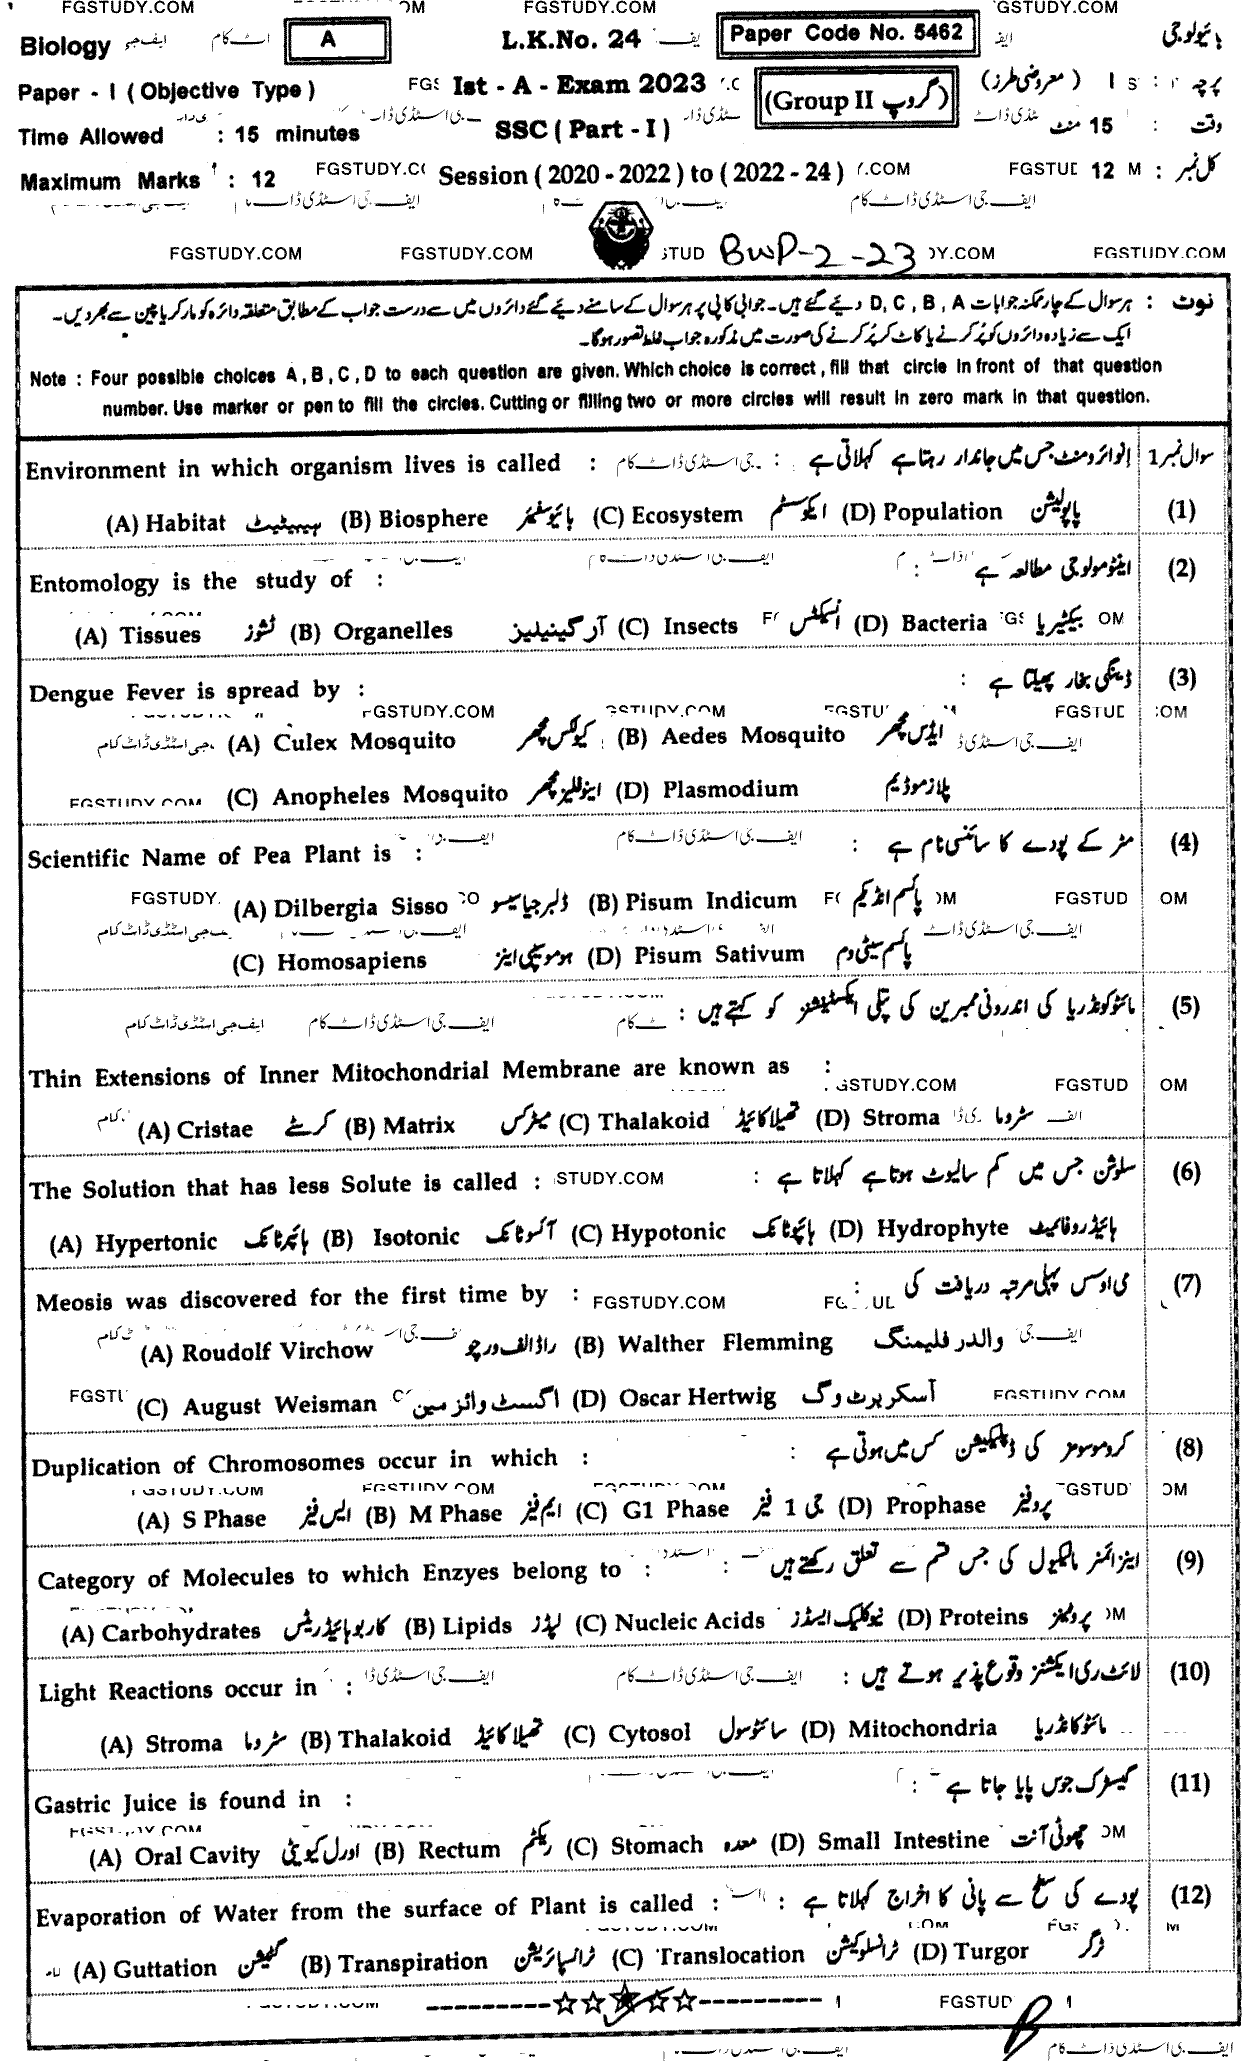 FGSTUDY.COM FGSTUDY.COM
Biology A L.K.No. 24 Paper Code No. 5462 بائیولوجی
Paper - I ( Objective Type ) Ist - A - Exam 2023 (Group II گروپ) پرچہ : I ( معروضی طرز )
Time Allowed : 15 minutes SSC ( Part - I ) وقت : 15 منٹ
Maximum Marks : 12 Session ( 2020 - 2022 ) to ( 2022 - 24 ) کل نمبر : 12
FGSTUDY.COM FGSTUDY.COM BWP-2-23 FGSTUDY.COM
نوٹ : ہر سوال کے چار ممکنہ جوابات D, C, B, A دیئے گئے ہیں۔ جوابی کاپی پر ہر سوال کے سامنے دیئے گئے دائروں میں سے درست جواب کے مطابق متعلقہ دائرہ کو مارکر یا پین سے بھر دیں۔
ایک سے زیادہ دائروں کو پُر کرنے یا کاٹ کر پُر کرنے کی صورت میں مذکورہ جواب غلط تصور ہوگا۔
Note : Four possible choices A , B , C , D to each question are given. Which choice is correct , fill that circle in front of that question
number. Use marker or pen to fill the circles. Cutting or filling two or more circles will result in zero mark in that question.
Environment in which organism lives is called : انوائرومنٹ جس میں جاندار رہتا ہے کہلاتی ہے : سوال نمبر 1
(A) Habitat ہیبیٹیٹ (B) Biosphere بائیوسفیئر (C) Ecosystem ایکوسسٹم (D) Population پاپولیشن (1)
Entomology is the study of : اینٹومولوجی مطالعہ ہے : (2)
(A) Tissues ٹشوز (B) Organelles آرگینیلیز (C) Insects انسیکٹس (D) Bacteria بیکٹیریا
Dengue Fever is spread by : ڈینگی بخار پھیلتا ہے : (3)
FGSTUDY.COM
(A) Culex Mosquito کیولکس مچھر (B) Aedes Mosquito ایڈس مچھر
(C) Anopheles Mosquito اینوفلیز مچھر (D) Plasmodium پلازموڈیم
Scientific Name of Pea Plant is : مٹر کے پودے کا سائنسی نام ہے : (4)
(A) Dilbergia Sisso ڈلبرجیا سیسو (B) Pisum Indicum پائسم انڈیکم
(C) Homosapiens ہوموسیپی اینز (D) Pisum Sativum پائسم سیٹی وم
مائٹوکونڈریا کی اندرونی ممبرین کی پتلی ایکسٹینشنز کو کہتے ہیں : (5)
Thin Extensions of Inner Mitochondrial Membrane are known as :
(A) Cristae کرسٹے (B) Matrix میٹرکس (C) Thalakoid تھیلاکائیڈ (D) Stroma سٹروما
The Solution that has less Solute is called : سلوشن جس میں کم سالیوٹ ہوتا ہے کہلاتا ہے : (6)
(A) Hypertonic ہائپرٹانک (B) Isotonic آئسوٹانک (C) Hypotonic ہائپوٹانک (D) Hydrophyte ہائیڈروفائیٹ
Meosis was discovered for the first time by : FGSTUDY.COM می اوسس پہلی مرتبہ دریافت کی : (7)
(A) Roudolf Virchow راڈالف ورچو (B) Walther Flemming والدر فلیمنگ
(C) August Weisman اگسٹ وائز مین (D) Oscar Hertwig آسکر ہرٹ وگ FGSTUDY.COM
Duplication of Chromosomes occur in which : کروموسومز کی ڈپلیکیشن کس میں ہوتی ہے : (8)
(A) S Phase ایس فیز (B) M Phase ایم فیز (C) G1 Phase جی 1 فیز (D) Prophase پروفیز
Category of Molecules to which Enzyes belong to : اینزائمز مالیکیول کی جس قسم سے تعلق رکھتے ہیں : (9)
(A) Carbohydrates کاربوہائیڈریٹس (B) Lipids لپڈز (C) Nucleic Acids نیوکلیک ایسڈز (D) Proteins پروٹینز
Light Reactions occur in : لائٹ ری ایکشنز وقوع پذیر ہوتے ہیں : (10)
(A) Stroma سٹروما (B) Thalakoid تھیلاکائیڈ (C) Cytosol سائٹوسول (D) Mitochondria مائٹوکانڈریا
Gastric Juice is found in : گیسٹرک جوس پایا جاتا ہے : (11)
(A) Oral Cavity اورل کیویٹی (B) Rectum ریکٹم (C) Stomach معدہ (D) Small Intestine چھوٹی آنت
Evaporation of Water from the surface of Plant is called : پودے کی سطح سے پانی کا اخراج کہلاتا ہے : (12)
(A) Guttation گٹیشن (B) Transpiration ٹرانسپائریشن (C) Translocation ٹرانسلوکیشن (D) Turgor ٹرگر